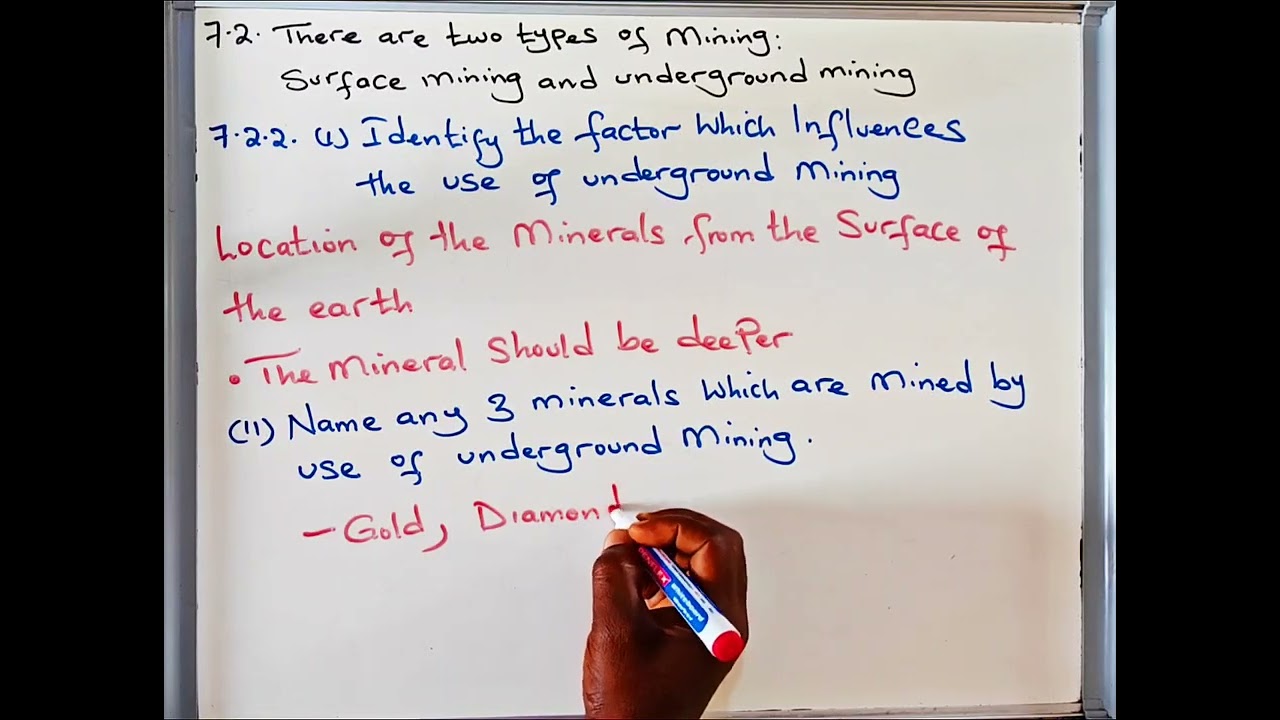 7.2. There are two types of Mining:
Surface mining and underground mining
7.2.2. (i) Identify the factor which Influences
the use of underground Mining
Location of the Minerals from the Surface of
the earth
• The Mineral Should be deeper
(II) Name any 3 minerals which are Mined by
use of underground Mining.
– Gold, Diamond